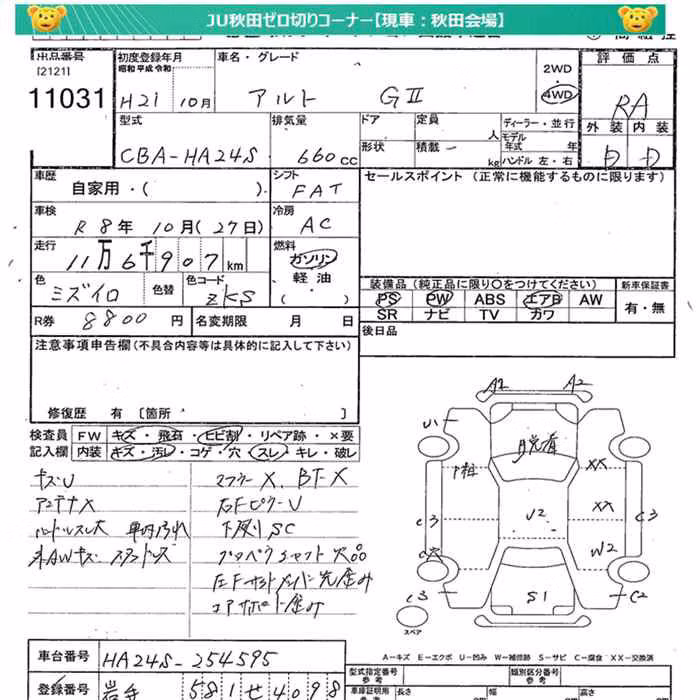 JU秋田ゼロ切りコーナー【現車：秋田会場】
出品番号 [2121] 11031
初度登録年月 昭和 平成 令和 H21 10月
車名・グレード アルト GⅡ
2WD 4WD
評価点 RA
外装 内装
D D
型式 CBA-HA24S
排気量 660cc
ドア 定員 人
形状 積載 kg
ディーラー・並行
モデル年式 年
ハンドル 左・右
車歴 自家用・( ).
シフト FAT
セールスポイント（正常に機能するものに限ります）
車検 R8年10月(27日)
冷房 AC
走行 11万6千907km
燃料 ガソリン 軽油 ( )
色 ミズイロ 色替
色コード ZKS
装備品（純正品に限り○をつけてください）
PS PW ABS エアB AW
SR ナビ TV カワ
新車保証書 有・無
R券 8800円 名変期限 月 日
後日品
注意事項申告欄（不具合内容等は具体的に記入して下さい）
修復歴 有 〔箇所 〕
検査員記入欄
FW キズ・飛石・ヒビ割・リペア跡・×要
内装 キズ・汚レ・コゲ・穴・スレ・キレ・破レ
キズU
アンテナX
ハンドルスレ大 車内汚れ
マフラーX. BT-X
右FピラーU
下廻りSC
プロペラシャフト欠品
A2 A2
XX
XX
U2
W2
C3 C3
S1
C3 C2
スペア
A=キズ E=エクボ U=凹み W=補修跡 S=サビ C=腐食 XX=交換済
車台番号 HA24S-254595
登録番号 岩手 581せ4098
型式指定番号 参考
類別区分番号 参考
車庫証明用 長さ 幅 高さ